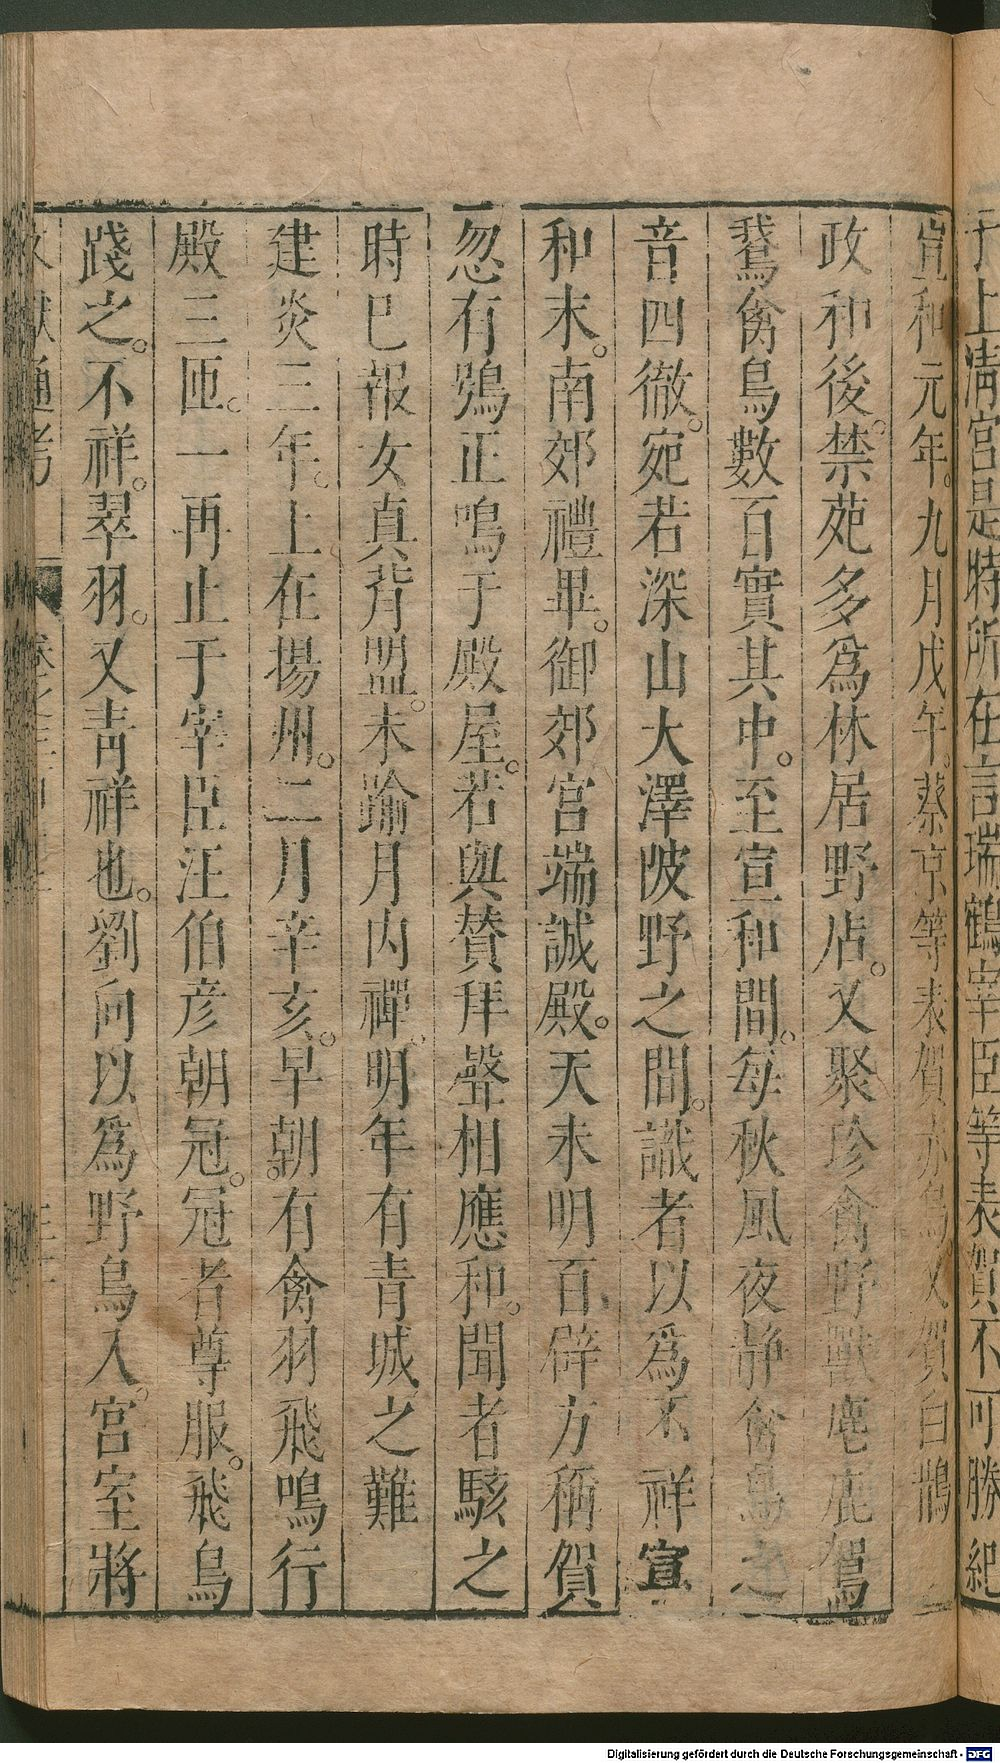 于上淸宮是時所在言瑞鶴宰臣等表賀不可勝紀
宣和元年。九月戊午。蔡京等表賀赤烏。又賀白鵲
政和後。禁苑多爲林居野店。又聚珍禽野獸麀鹿鴐
鵞禽鳥數百實其中。至宣和間。每秋風夜静禽鳥之
音四徹。宛若深山大澤陂野之間。識者以爲不祥宣
和末。南郊禮畢。御郊宮端誠殿。天未明百辟方稱賀
忽有鴞正鳴于殿屋。若與贊拜聲相應和。聞者駭之
時已報女真背盟。未踰月内禪。明年有青城之難
建炎三年。上在揚州。二月辛亥。早朝。有禽羽飛鳴行
殿三匝。一再止于宰臣汪伯彦朝冠。冠者尊服。飛鳥
踐之。不祥。翠羽。又靑祥也。劉向以爲野鳥入。宮室將
文獻通考
Digitalisierung gefördert durch die Deutsche Forschungsgemeinschaft - DFG